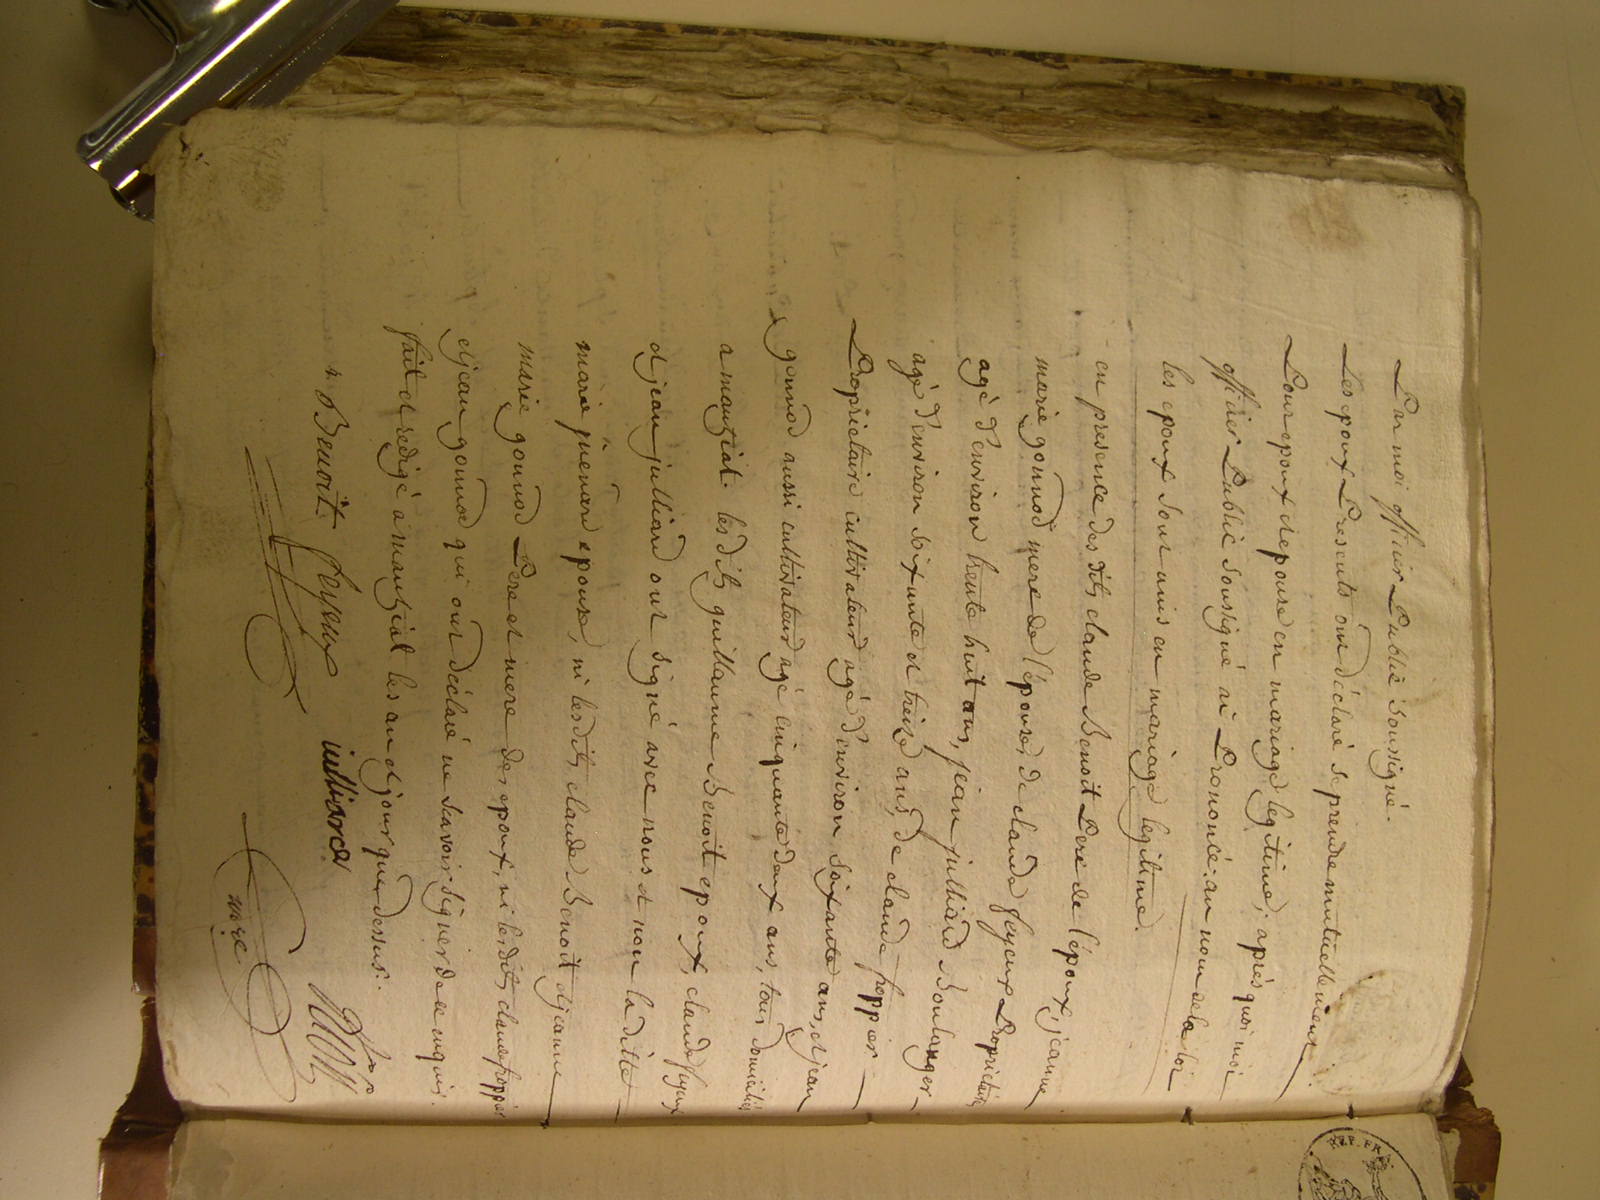 Par moi officier Public soussigné.
Les epoux Presents ont déclaré se prendre mutuellement
Pour epoux et epouse en mariage legitime; après quoi moi
officier Public soussigné ai Prononcé, au nom de la loi
les epoux sont unis en mariage legitime.
en presence desdits claude Benoit Pere de l'époux, jeanne
marie gonnod mere de l'épouse, de claude feyeux Proprietaire
agé d'environ trente huit ans, jean julliard Boulanger
agé d'environ soixante et treize ans, de claude froppier
Proprietaire cultivateur agé d'environ soixante ans, et jean
gonnod aussi cultivateur agé cinquante deux ans, tous domiciliés
a manziat. les dits guillaume Benoit epoux, claude feyeux
et jean julliard ont signé avec nous et non la ditte
marie epouse, ni lesdits claude Benoit et jeanne
marie gonnod Pere et mere des epoux, ni lesdits claude froppier
et jean gonnod qui ont déclaré ne scavoir signer de ce enquis.
fait et redigé a manziat les an et jour que dessus.
Benoit feyeux julliard